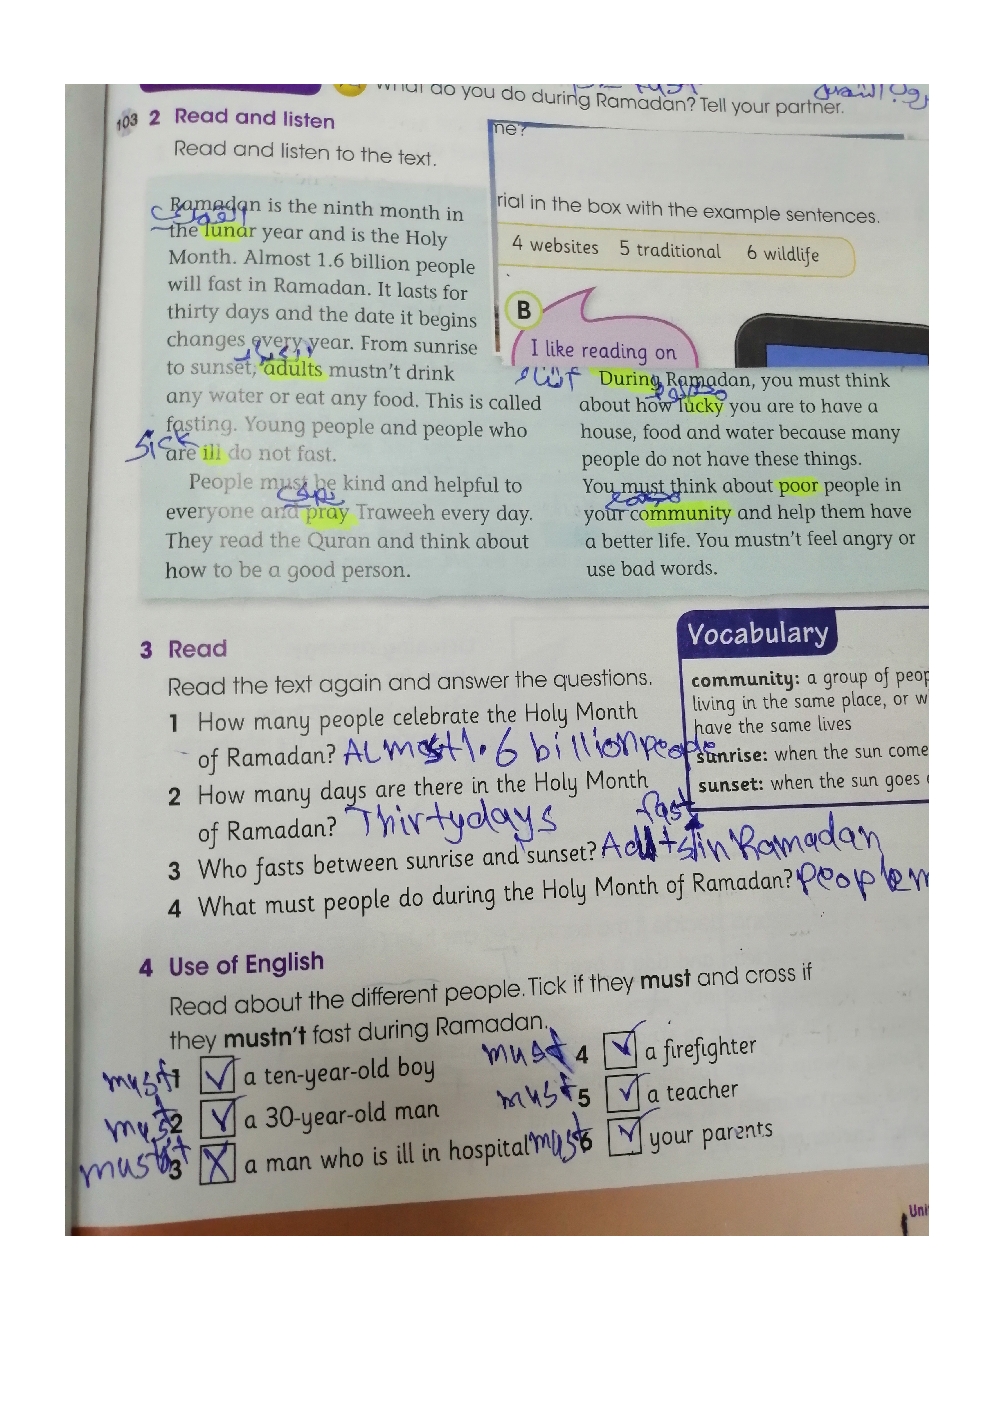 What do you do during Ramadan? Tell your partner.
103 2 Read and listen
Read and listen to the text.
Ramadan is the ninth month in
the lunar year and is the Holy
Month. Almost 1.6 billion people
will fast in Ramadan. It lasts for
thirty days and the date it begins
changes every year. From sunrise
to sunset, adults mustn't drink
any water or eat any food. This is called
fasting. Young people and people who
sick
are ill do not fast.
People must be kind and helpful to
everyone and pray Traweeh every day.
They read the Quran and think about
how to be a good person.
me?
rial in the box with the example sentences.
4 websites 5 traditional 6 wildlife
B
I like reading on
أثناء
During Ramadan, you must think
about how lucky you are to have a
house, food and water because many
people do not have these things.
You must think about poor people in
مجتمع
your community and help them have
a better life. You mustn't feel angry or
use bad words.
3 Read
Read the text again and answer the questions.
1 How many people celebrate the Holy Month
of Ramadan? Almost 1.6 billion people
2 How many days are there in the Holy Month
of Ramadan? Thirty days
fast
3 Who fasts between sunrise and sunset? Adults in Ramadan
4 What must people do during the Holy Month of Ramadan? People m
Vocabulary
community: a group of peop
living in the same place, or w
have the same lives
sunrise: when the sun come
sunset: when the sun goes
4 Use of English
Read about the different people. Tick if they must and cross if
they mustn't fast during Ramadan.
must 1 a ten-year-old boy
must 2 a 30-year-old man
mustn't 3 a man who is ill in hospital
must 4 a firefighter
must 5 a teacher
must 6 your parents
Uni